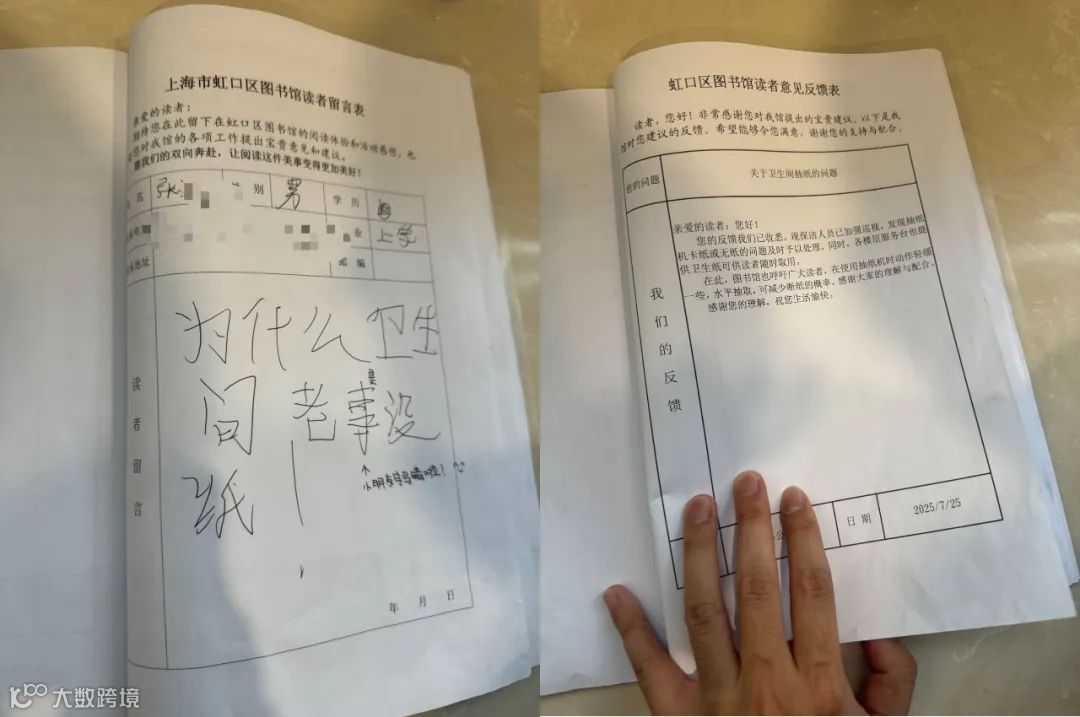 上海市虹口区图书馆读者留言表
亲爱的读者：
期待您在此留下在虹口区图书馆的阅读体验和活动感悟，也
您对我馆的各项工作提出宝贵意见和建议。
我们的双向奔赴，让阅读这件美事变得更加美好！
名 张 性 别 男 学 历
业 上学
地址 邮 编
读者留言
为什么卫生
间老事没
是
纸！
↑
小朋友字写错啦！
年 月 日
虹口区图书馆读者意见反馈表
读者，您好！非常感谢您对我馆提出的宝贵建议。以下是我
馆对您建议的反馈。希望能够令您满意，谢谢您的支持与配合。
您的问题 关于卫生间抽纸的问题
我们的反馈
亲爱的读者：您好！
您的反馈我们已收悉。现保洁人员已加强巡视，发现抽纸
机卡纸或无纸的问题及时予以处理，同时，各楼层服务台也提
供卫生纸可供读者随时取用。
在此，图书馆也呼吁广大读者，在使用抽纸机时动作轻缓
一些，水平抽取，可减少断纸的概率，感谢大家的理解与配合。
感谢您的理解，祝您生活愉快。
日 期 2025/7/25
大数跨境